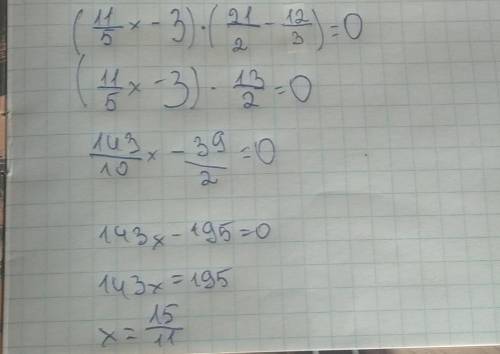 (11/5 x - 3) · (21/2 - 12/3) = 0
(11/5 x - 3) · 13/2 = 0
143/10 x - 39/2 = 0
143x - 195 = 0
143x = 195
x = 15/11